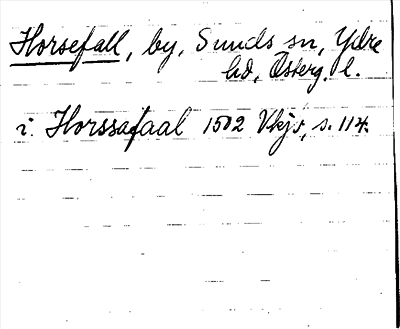 Horsefall, by, Sunds sn, Ydre
hd, Österg. l.
i Horssafaal 1502 Vkjr, s. 114.